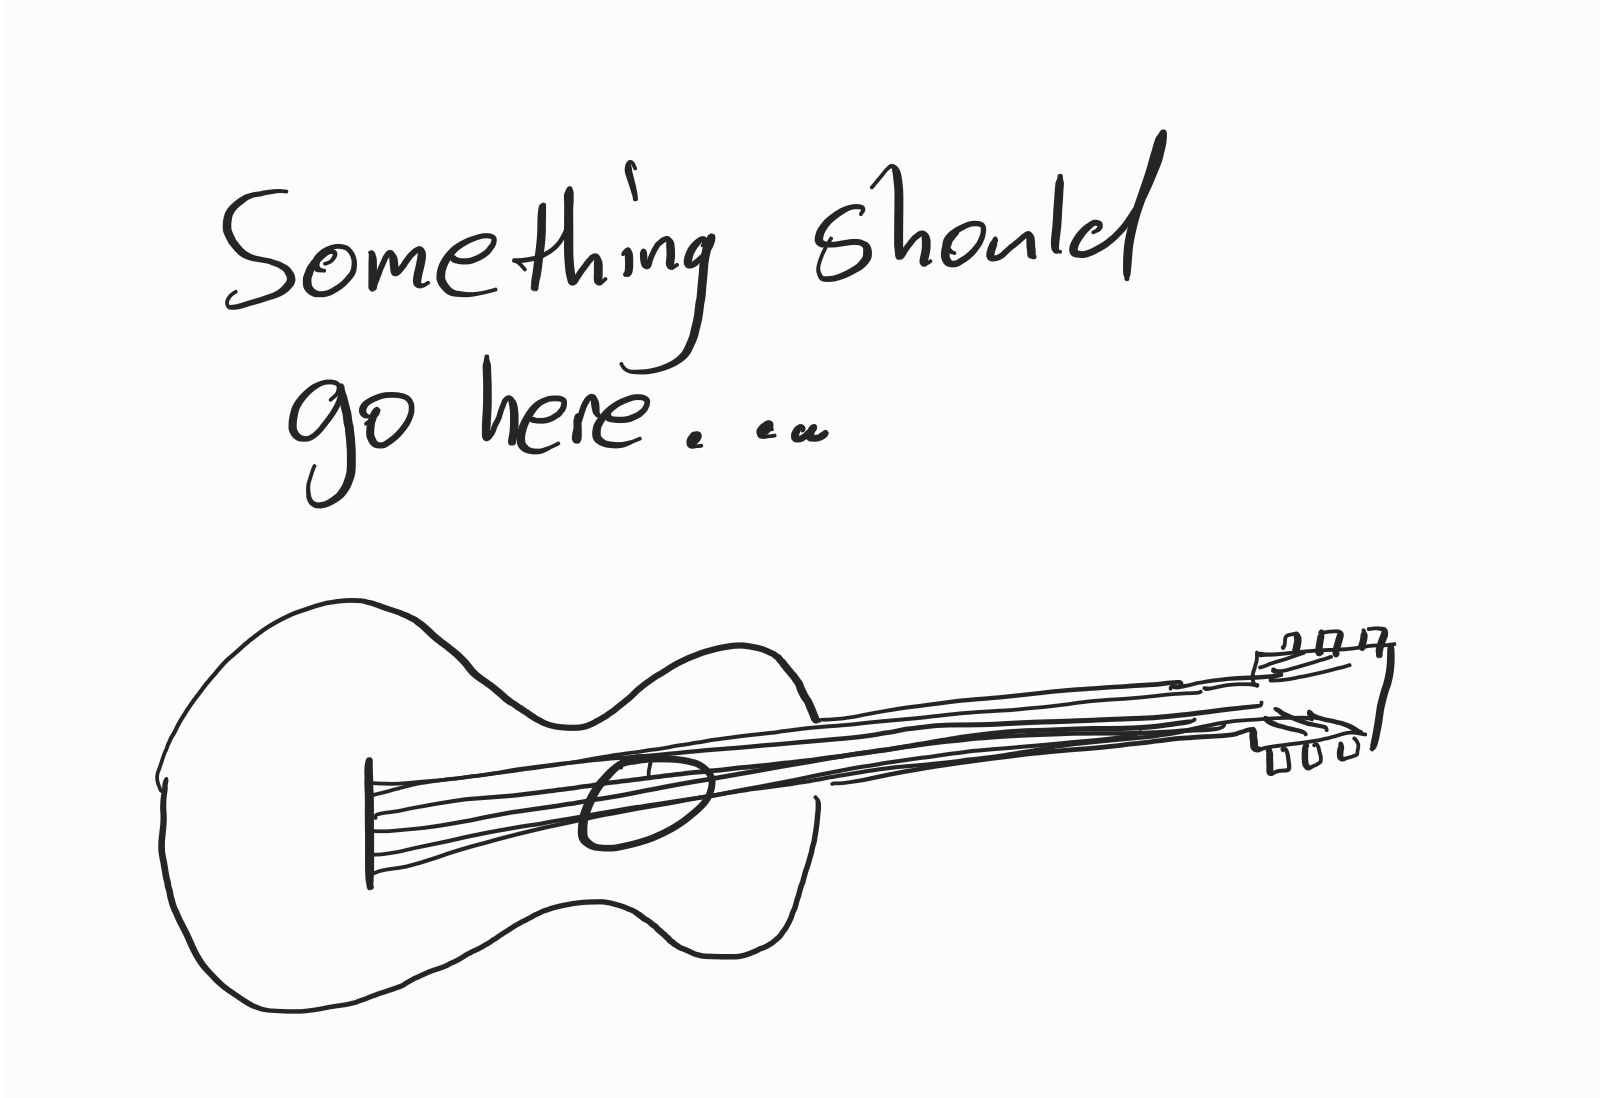 Something should
go here...